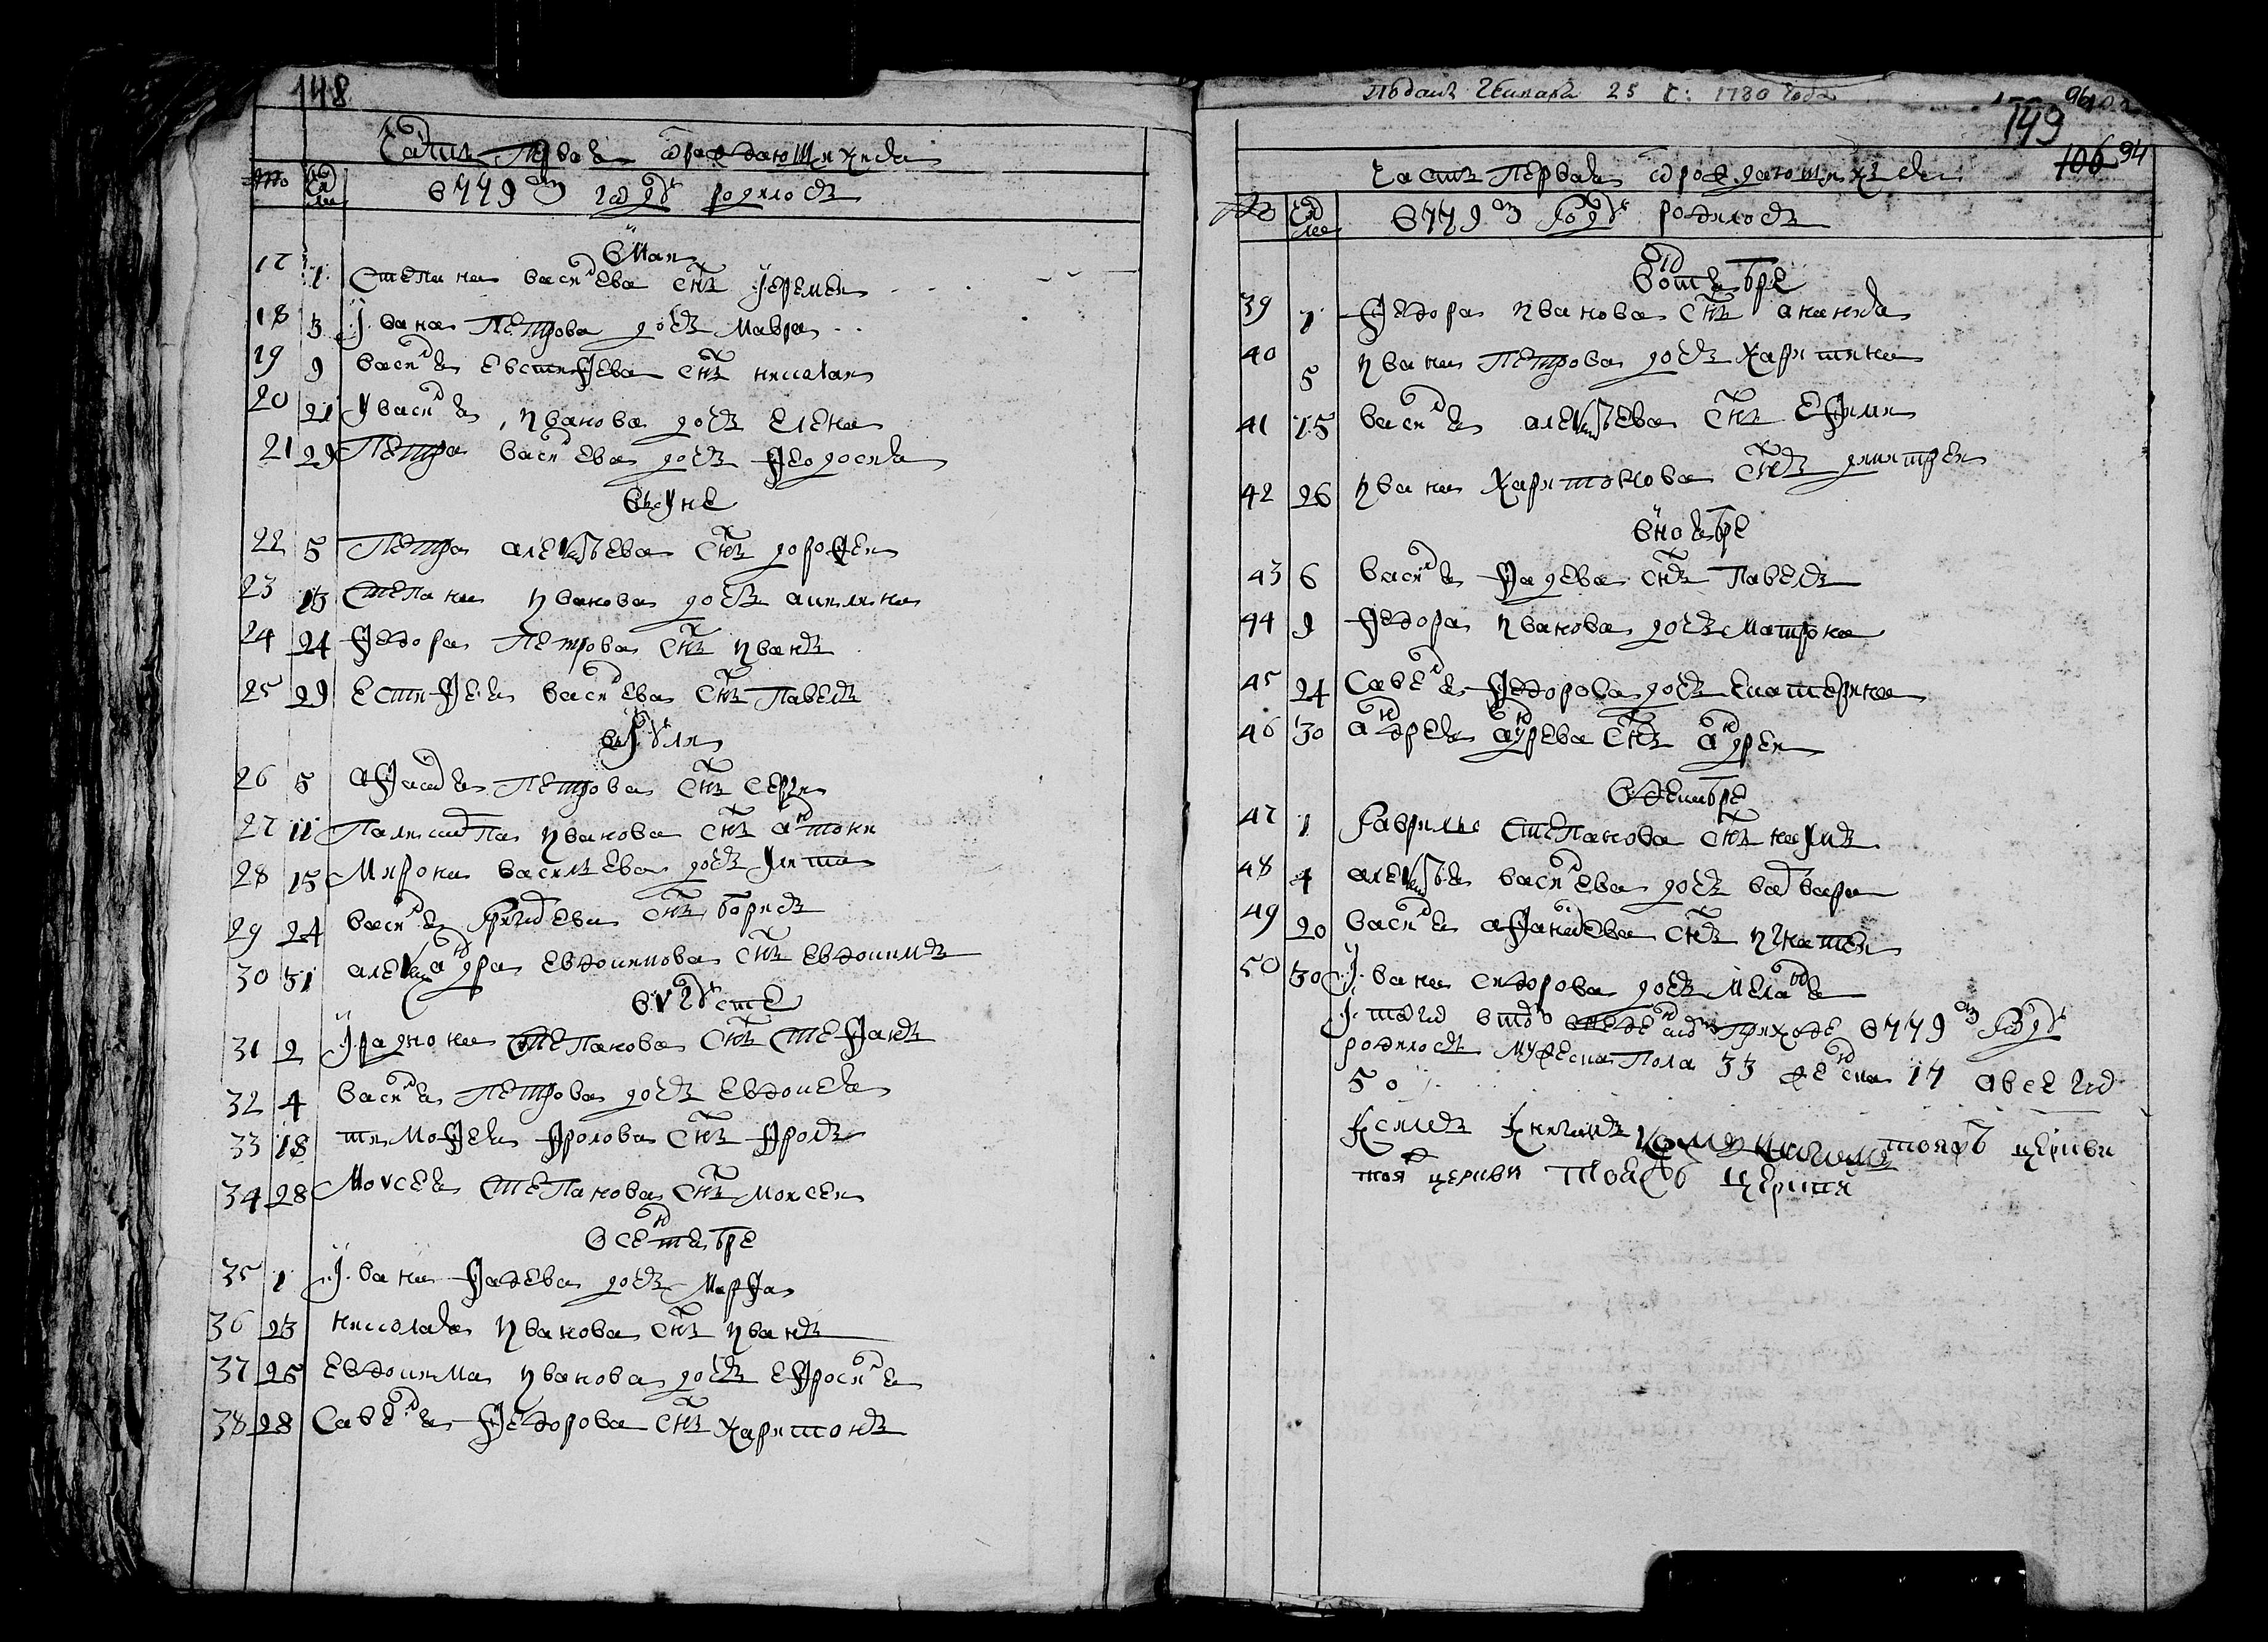 148
Часть Первая о раждающихся
No Чи сла 779м годѣ родилось
в маи
17 1 Степана васильева снъ Иеремеи
18 3 Ивана Петрова дочь мавра
19 9 василья евстифеева снъ николаи
20 21 У василья Иванова дочь елена
21 29 Петра васильева дочь феодосия
в июне
22 5 Петра алексѣева снъ дорофеи
23 13 Степана Иванова дочь акилина
24 24 федора Петрова снъ Иванъ
25 29 естифея васильева снъ Павелъ
в июли
26 5 афанасья Петрова снъ серги
27 11 Иванова снъ антони
28 15 Мирона васильева дочь улита
29 24 василья григорева снъ борисъ
30 31 александра евдокимова снъ евдокимъ
в августе
31 2 Степанова снъ Стефанъ
32 4 василья Петрова дочь евдокея
33 18 тимофея фролова снъ фролъ
34 28 Моисея Степанова снъ моисеи
в сентябре
35 1 Ивана фадева дочь Марфа
36 23 николая Иванова снъ Иванъ
37 25 евдокима Иванова дочь ефросинья
38 28 савелья федорова снъ харитонъ
Поданъ Генваря 25 ч: 1780 года
149
106 94
часть Первая о рождающихся
No Чи сла 779м годѣ родилось
в октябре
39 1 федора Иванова снъ ананья
40 5 Ивана Петрова дочь харитина
41 15 василья алексѣева снъ ефимъ
42 26 Ивана харитонова снъ димитреи
в ноябре
43 6 василья фадева снъ Павелъ
44 9 федора Иванова дочь матрона
45 24 савелья федорова дочь екатерина
46 30 андрея андрева снъ андреи
в декабре
47 1 гаврилы Степанова снъ наумъ
48 4 алексѣя васильева дочь варвара
49 20 василья афанасева снъ игнатеи
50 30 Ивана сидорова дочь меланья
Итого в томъ приходе 779м годѣ
родилось мужеска Пола 33 женска 17 а всего
50
К симъ книгамъ тояжъ церкви
тоя церкви тояжъ церкви